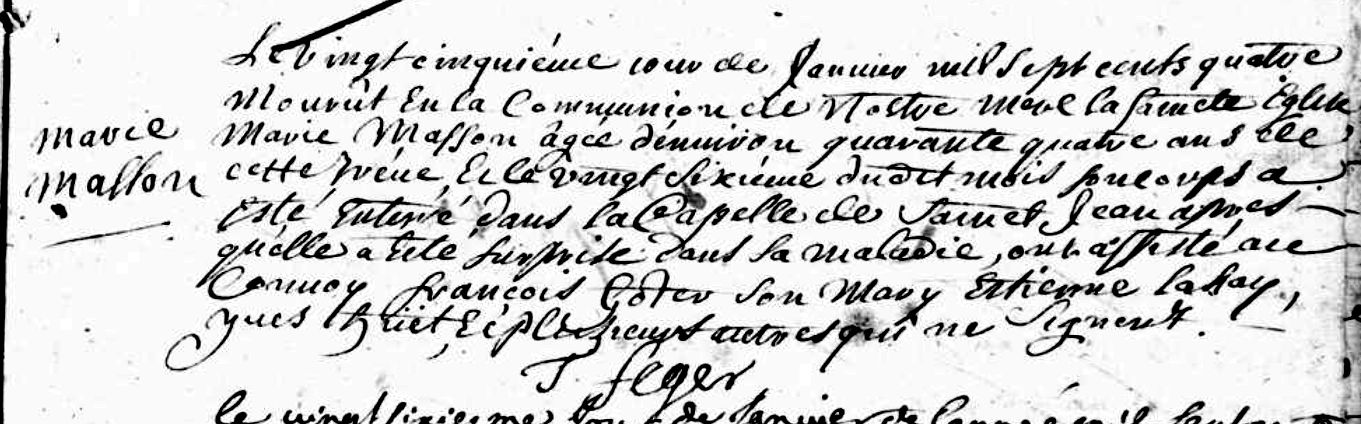 Le vingt cinquiéme jour de Janvier mil Sept cents quatre
Mourût En la Communion de Nostre Mere la saincte Eglise
Marie Masson âgée d'environ quarante quatre ans de
marie
Masson
cette tréve, Et le vingt Sixiéme dudit mois son corps a
Esté Enterré dans la Capelle de Sainct Jean apres
qu'elle a Esté surprise dans sa maladie, ont assisté au
Convoy françois son Mary Estienne
yves Et plusieurs autres qui ne Signent.
J. feger
le vingt sixiesme jour de Janvier de l'année mil